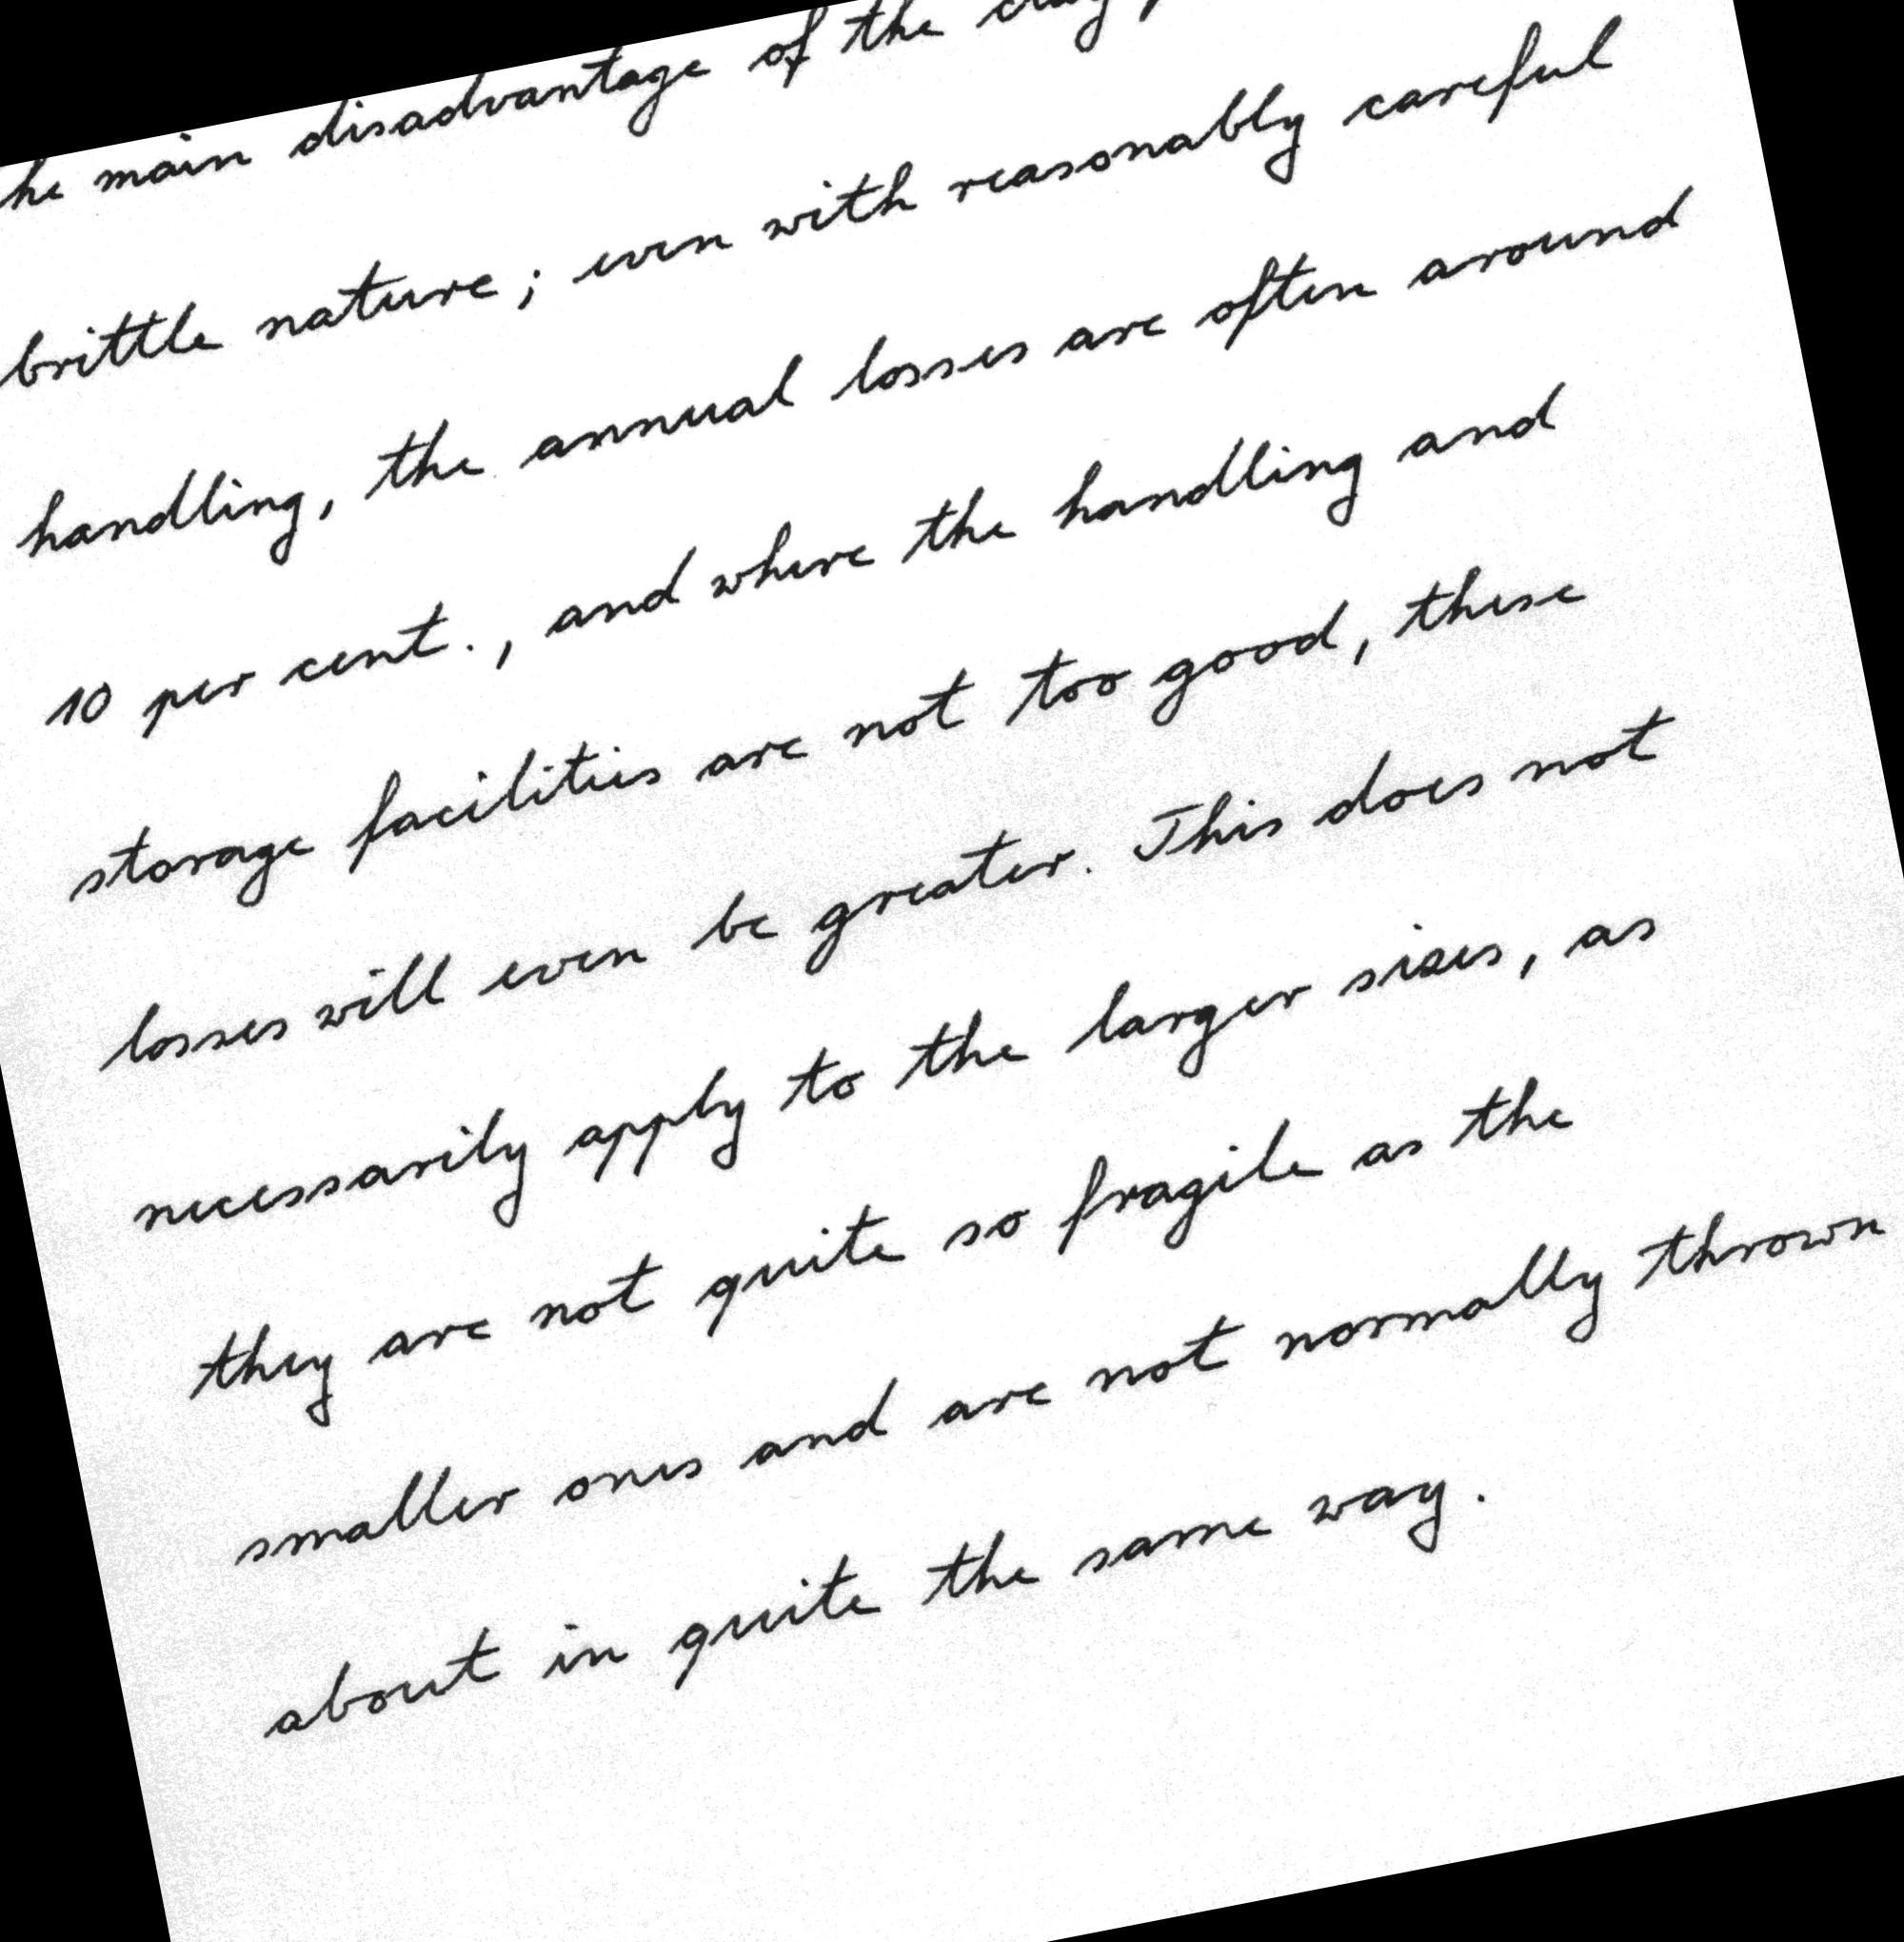 he main disadvantage of the clay
brittle nature; even with reasonably careful
handling, the annual losses are often around
10 per cent., and where the handling and
storage facilities are not too good, these
losses will even be greater. This does not
necessarily apply to the larger sizes, as
they are not quite so fragile as the
smaller ones and are not normally thrown
about in quite the same way.